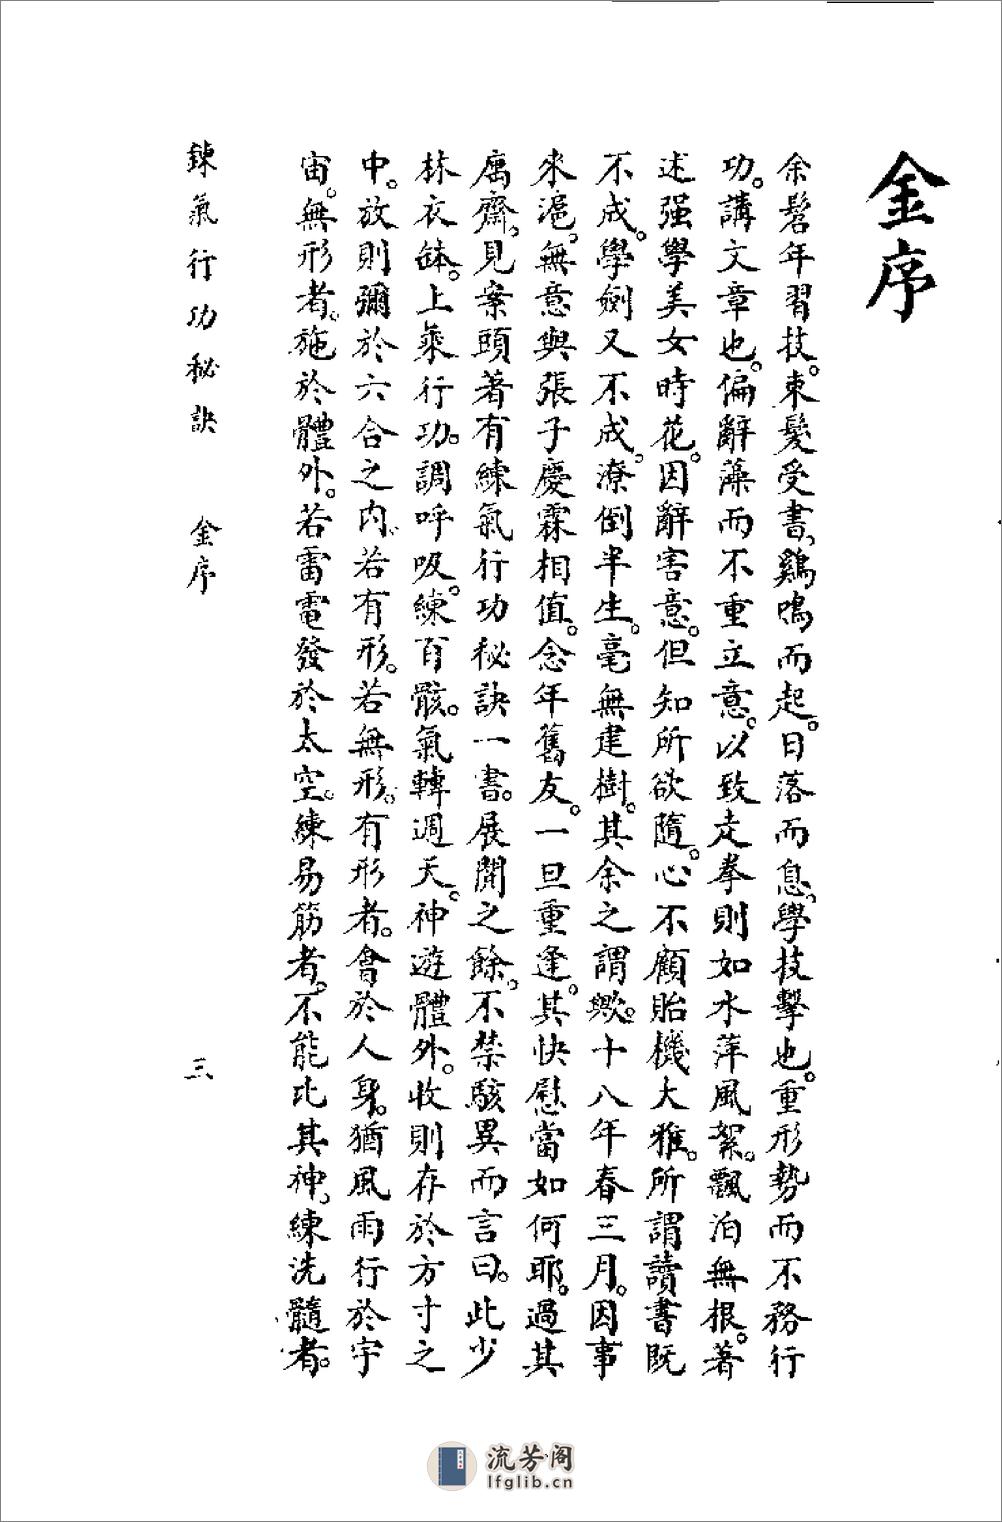 金序
余髫年習技。束髮受書、鷄鳴而起。日落而息、學技擊也。重形勢而不務行
功。講文章也。偏辭藻而不重立意。以致走拳則如水萍風絮。飄泊無根。著
述强學美女時花。因辭害意。但知所欲隨。心不顧貽機大雅。所謂讀書既
不成。學劍又不成、潦倒半生。毫無建樹。其余之謂歟。十八年春三月。因事
來滬。無意與張子慶霖相值。念年舊友。一旦重逢。其快慰當如何耶。過其
寓齋、見案頭著有練氣行功秘訣一書。展開之餘、不禁駭異而言曰。此少
林衣缽。上乘行功。調呼吸。練百骸。氣轉週天。神遊體外。收則存於方寸之
中。放則彌於六合之內、若有形。若無形。有形者。會於人身。猶風雨行於宇
宙。無形者。施於體外。若雷電發於太空。練易筋者。不能比其神、練洗髓者。
鍊氣行功秘訣 金序 三
流芳阁
lfglib.cn